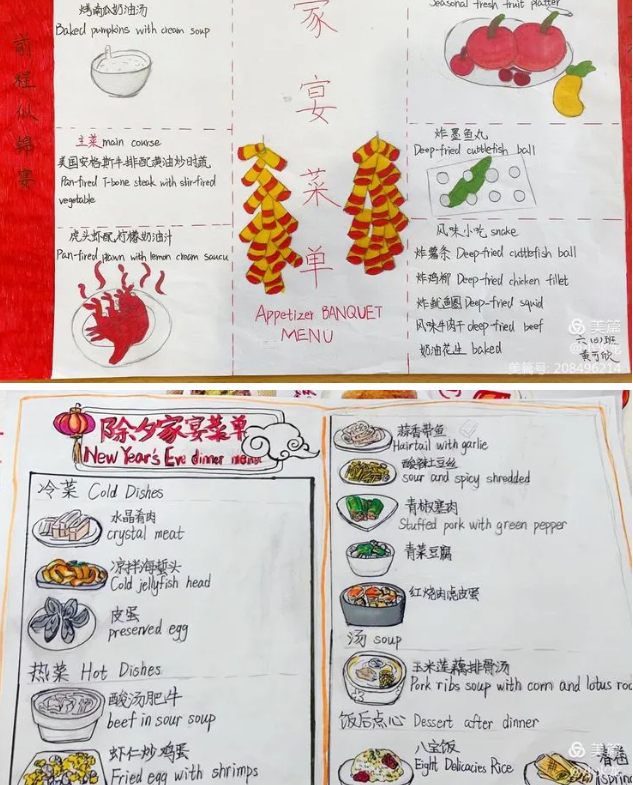 前程似锦宴
烤南瓜奶油汤
Baked pumpkins with cream soup
主菜 main course
美国安格斯牛排配黄油炒时蔬
Pan-fired T-bone steak with stir-fired
vegetable
虎头虾配柠檬奶油汁
Pan-fired prawn with lemon cream saucu
家宴菜单
Appetizer BANQUET
MENU
Seasonal fresh fruit platter
炸墨鱼丸
Deep-fried cuttlefish ball
风味小吃 snake
炸薯条 Deep-fried cuttlefish ball
炸鸡柳 Deep-fried chicken fillet
炸鱿鱼圈 Deep-fried squid
风味牛肉干 deep fried beef
奶油花生 baked
美篇
美篇号: 208496214
除夕家宴菜单
New Year's Eve dinner menu
冷菜 Cold Dishes
水晶肴肉
crystal meat
凉拌海蜇头
Cold jellyfish head
皮蛋
preserved egg
热菜 Hot Dishes
酸汤肥牛
beef in sour soup
虾仁炒鸡蛋
Fried egg with shrimps
蒜香带鱼
Hairtail with garlic
酸辣土豆丝
sour and spicy shredded
青椒塞肉
Stuffed pork with green pepper
青菜豆腐
红烧肉虎皮蛋
汤 soup
玉米莲藕排骨汤
Pork ribs soup with corn and lotus roo
饭后点心 Dessert after dinner
八宝饭
Eight Delicacies Rice
美篇